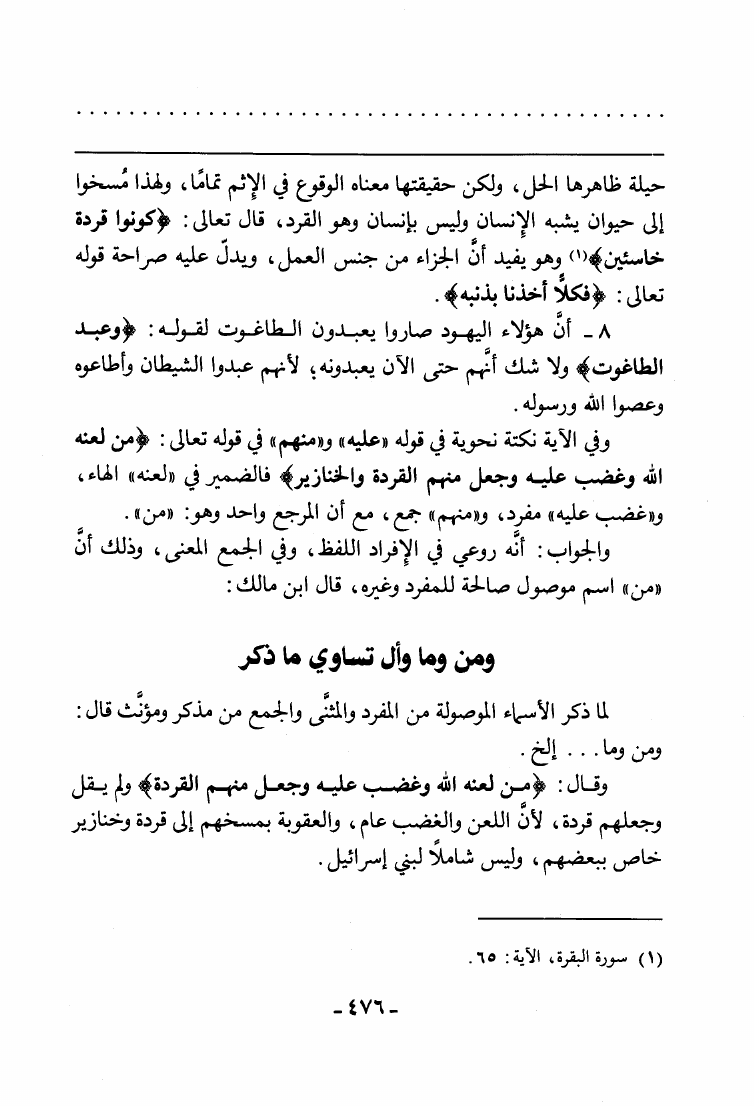 حيلة ظاهرها الحل، ولكن حقيقتها معناه الوقوع في الإثم تمامًا، ولهذا مُسخوا
إلى حيوان يشبه الإنسان وليس بإنسان وهو القرد، قال تعالى: ﴿كونوا قردة
خاسئين﴾(١) وهو يفيد أنَّ الجزاء من جنس العمل، ويدلّ عليه صراحة قوله
تعالى: ﴿فكلًّا أخذنا بذنبه﴾.
٨ ـ أنَّ هؤلاء اليهود صاروا يعبدون الطاغوت لقوله: ﴿وعبد
الطاغوت﴾ ولا شك أنَّهم حتى الآن يعبدونه؛ لأنهم عبدوا الشيطان وأطاعوه
وعصوا الله ورسوله.
وفي الآية نكتة نحوية في قوله «عليه» و«منهم» في قوله تعالى: ﴿من لعنه
الله وغضب عليه وجعل منهم القردة والخنازير﴾ فالضمير في «لعنه» الهاء،
و«غضب عليه» مفرد، و«منهم» جمع، مع أن المرجع واحد وهو: «من».
والجواب: أنَّه روعي في الإفراد اللفظ، وفي الجمع المعنى، وذلك أنَّ
«من» اسم موصول صالحة للمفرد وغيره، قال ابن مالك:
ومن وما وأل تساوي ما ذكر
لما ذكر الأسماء الموصولة من المفرد والمثنَّى والجمع من مذكر ومؤنَّث قال:
ومن وما... إلخ.
وقال: ﴿من لعنه الله وغضب عليه وجعل منهم القردة﴾ ولم يقل
وجعلهم قردة، لأنَّ اللعن والغضب عام، والعقوبة بمسخهم إلى قردة وخنازير
خاص ببعضهم، وليس شاملًا لبني إسرائيل.
(١) سورة البقرة، الآية: ٦٥.
ـ ٤٧٦ ـ